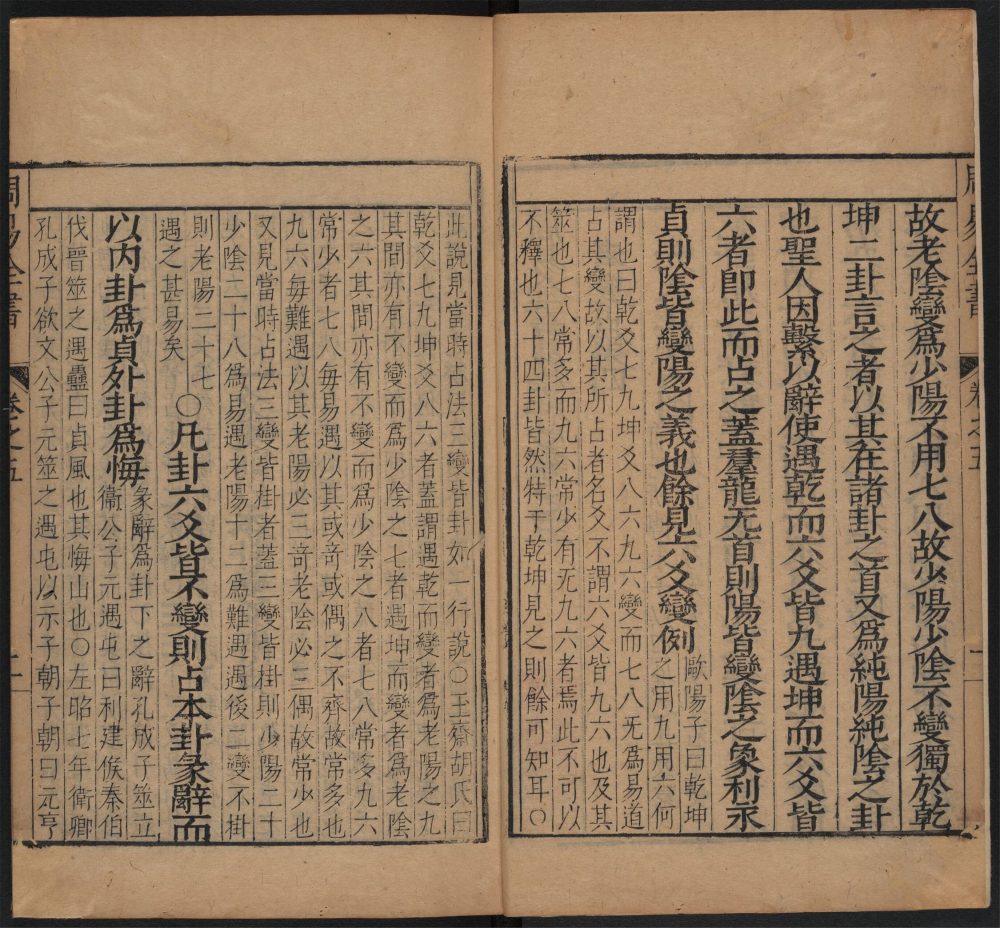 故老陰變爲少陽不用七八故少陽少陰不變獨於乾
坤二卦言之者以其在諸卦之首又爲純陽純陰之卦
也聖人因繫以辭使遇乾而六爻皆九遇坤而六爻皆
六者卽此而占之蓋羣龍无首則陽皆變陰之象利永
貞則陰皆變陽之義也餘見六爻變例
歐陽子曰乾坤
之用九用六何
謂也曰乾爻七九坤爻八六九六變而七八无爲易道
占其變故以其所占者名爻不謂六爻皆九六也及其
筮也七八常多而九六常少有无九六者焉此不可以
不釋也六十四卦皆然特于乾坤見之則餘可知耳○
此說見當時占法三變皆卦如一行說○王齋胡氏曰
乾爻七九坤爻八六者蓋謂遇乾而變者爲老陽之九
其間亦有不變而爲少陰之七者遇坤而變者爲老陰
之六其間亦有不變而爲少陰之八者七八常多九六
常少者七八每易遇以其或奇或偶之不齊故常多也
九六每難遇以其老陽必三奇老陰必三偶故常少也
又見當時占法三變皆掛者蓋三變皆掛則少陽二十
少陰二十八爲易遇老陽十二爲難遇遇後二變不掛
則老陽二十七
遇之甚易矣
○凡卦六爻皆不變則占本卦彖辭而
以內卦爲貞外卦爲悔
彖辭爲卦下之辭孔成子筮立
衞公子元遇屯曰利建侯秦伯
伐晉筮之遇蠱曰貞風也其悔山也○左昭七年衛卿
孔成子欲文公子元筮之遇屯以示子朝子朝曰元亨
周易全書
卷之五
周易全書
卷之五